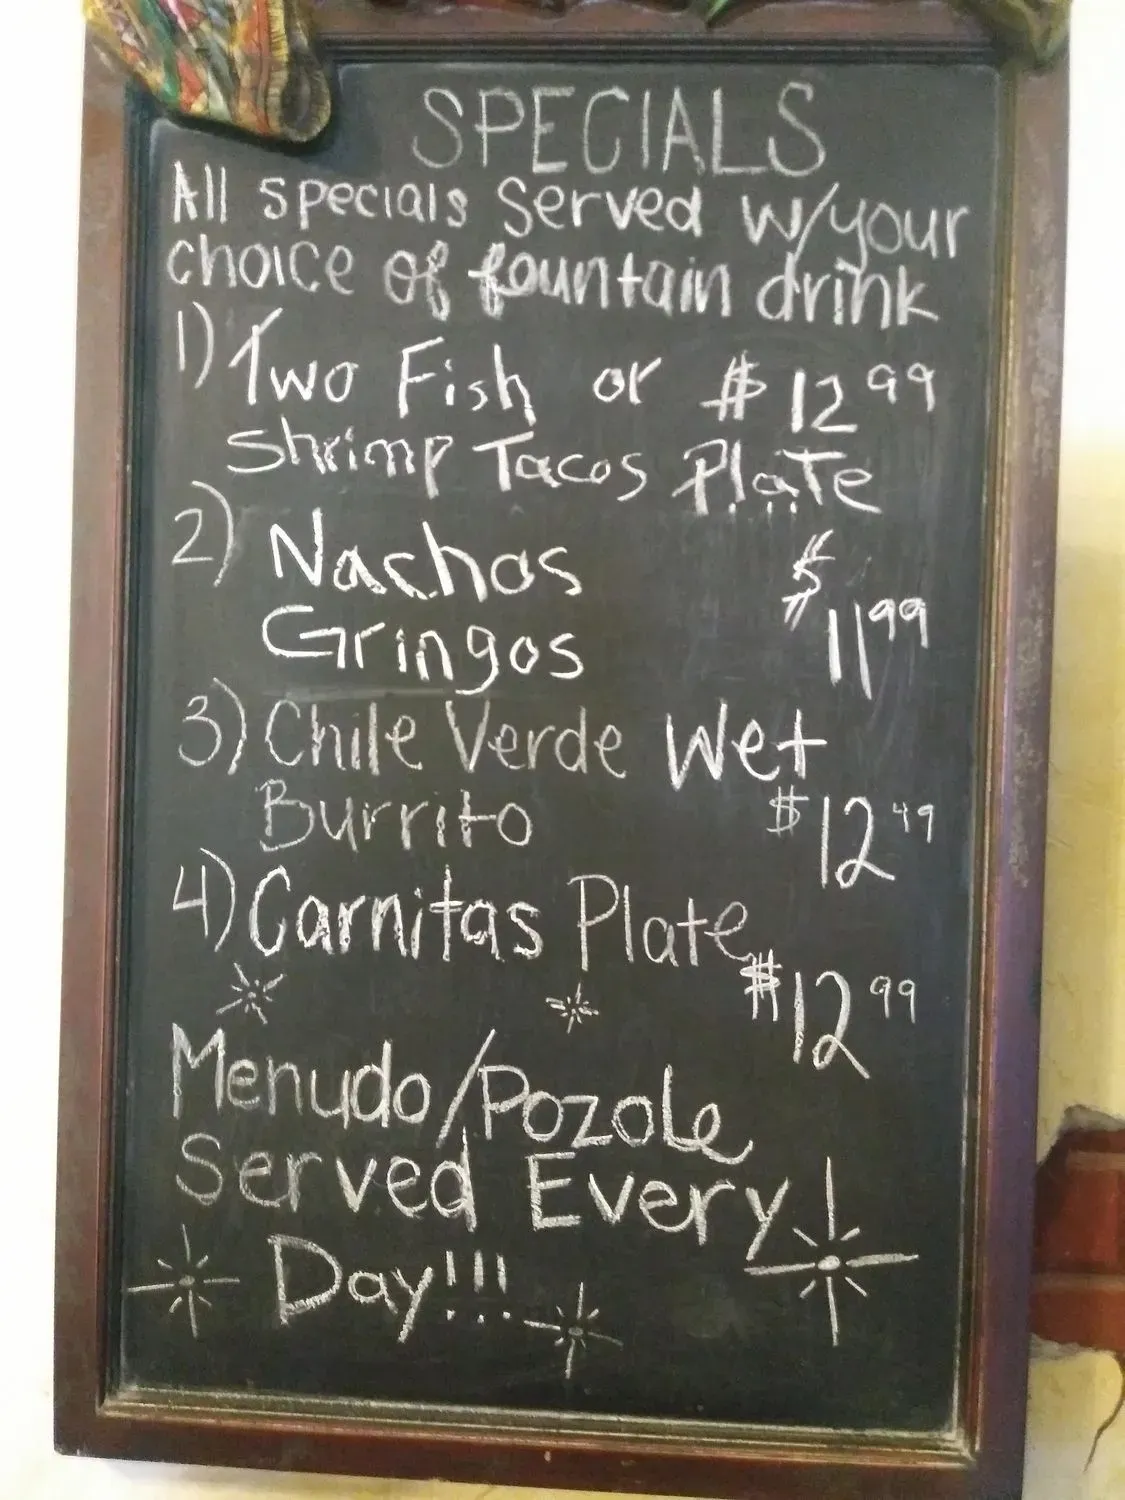 SPECIALS
All specials Served w/your
choice of fountain drink
1) Two Fish or $12.99
Shrimp Tacos Plate
2) Nachos $
Gringos 11 99
3) Chile Verde Wet
Burrito $12 49
4) Carnitas Plate
$12 99
Menudo/Pozole
Served Every
Day!!!